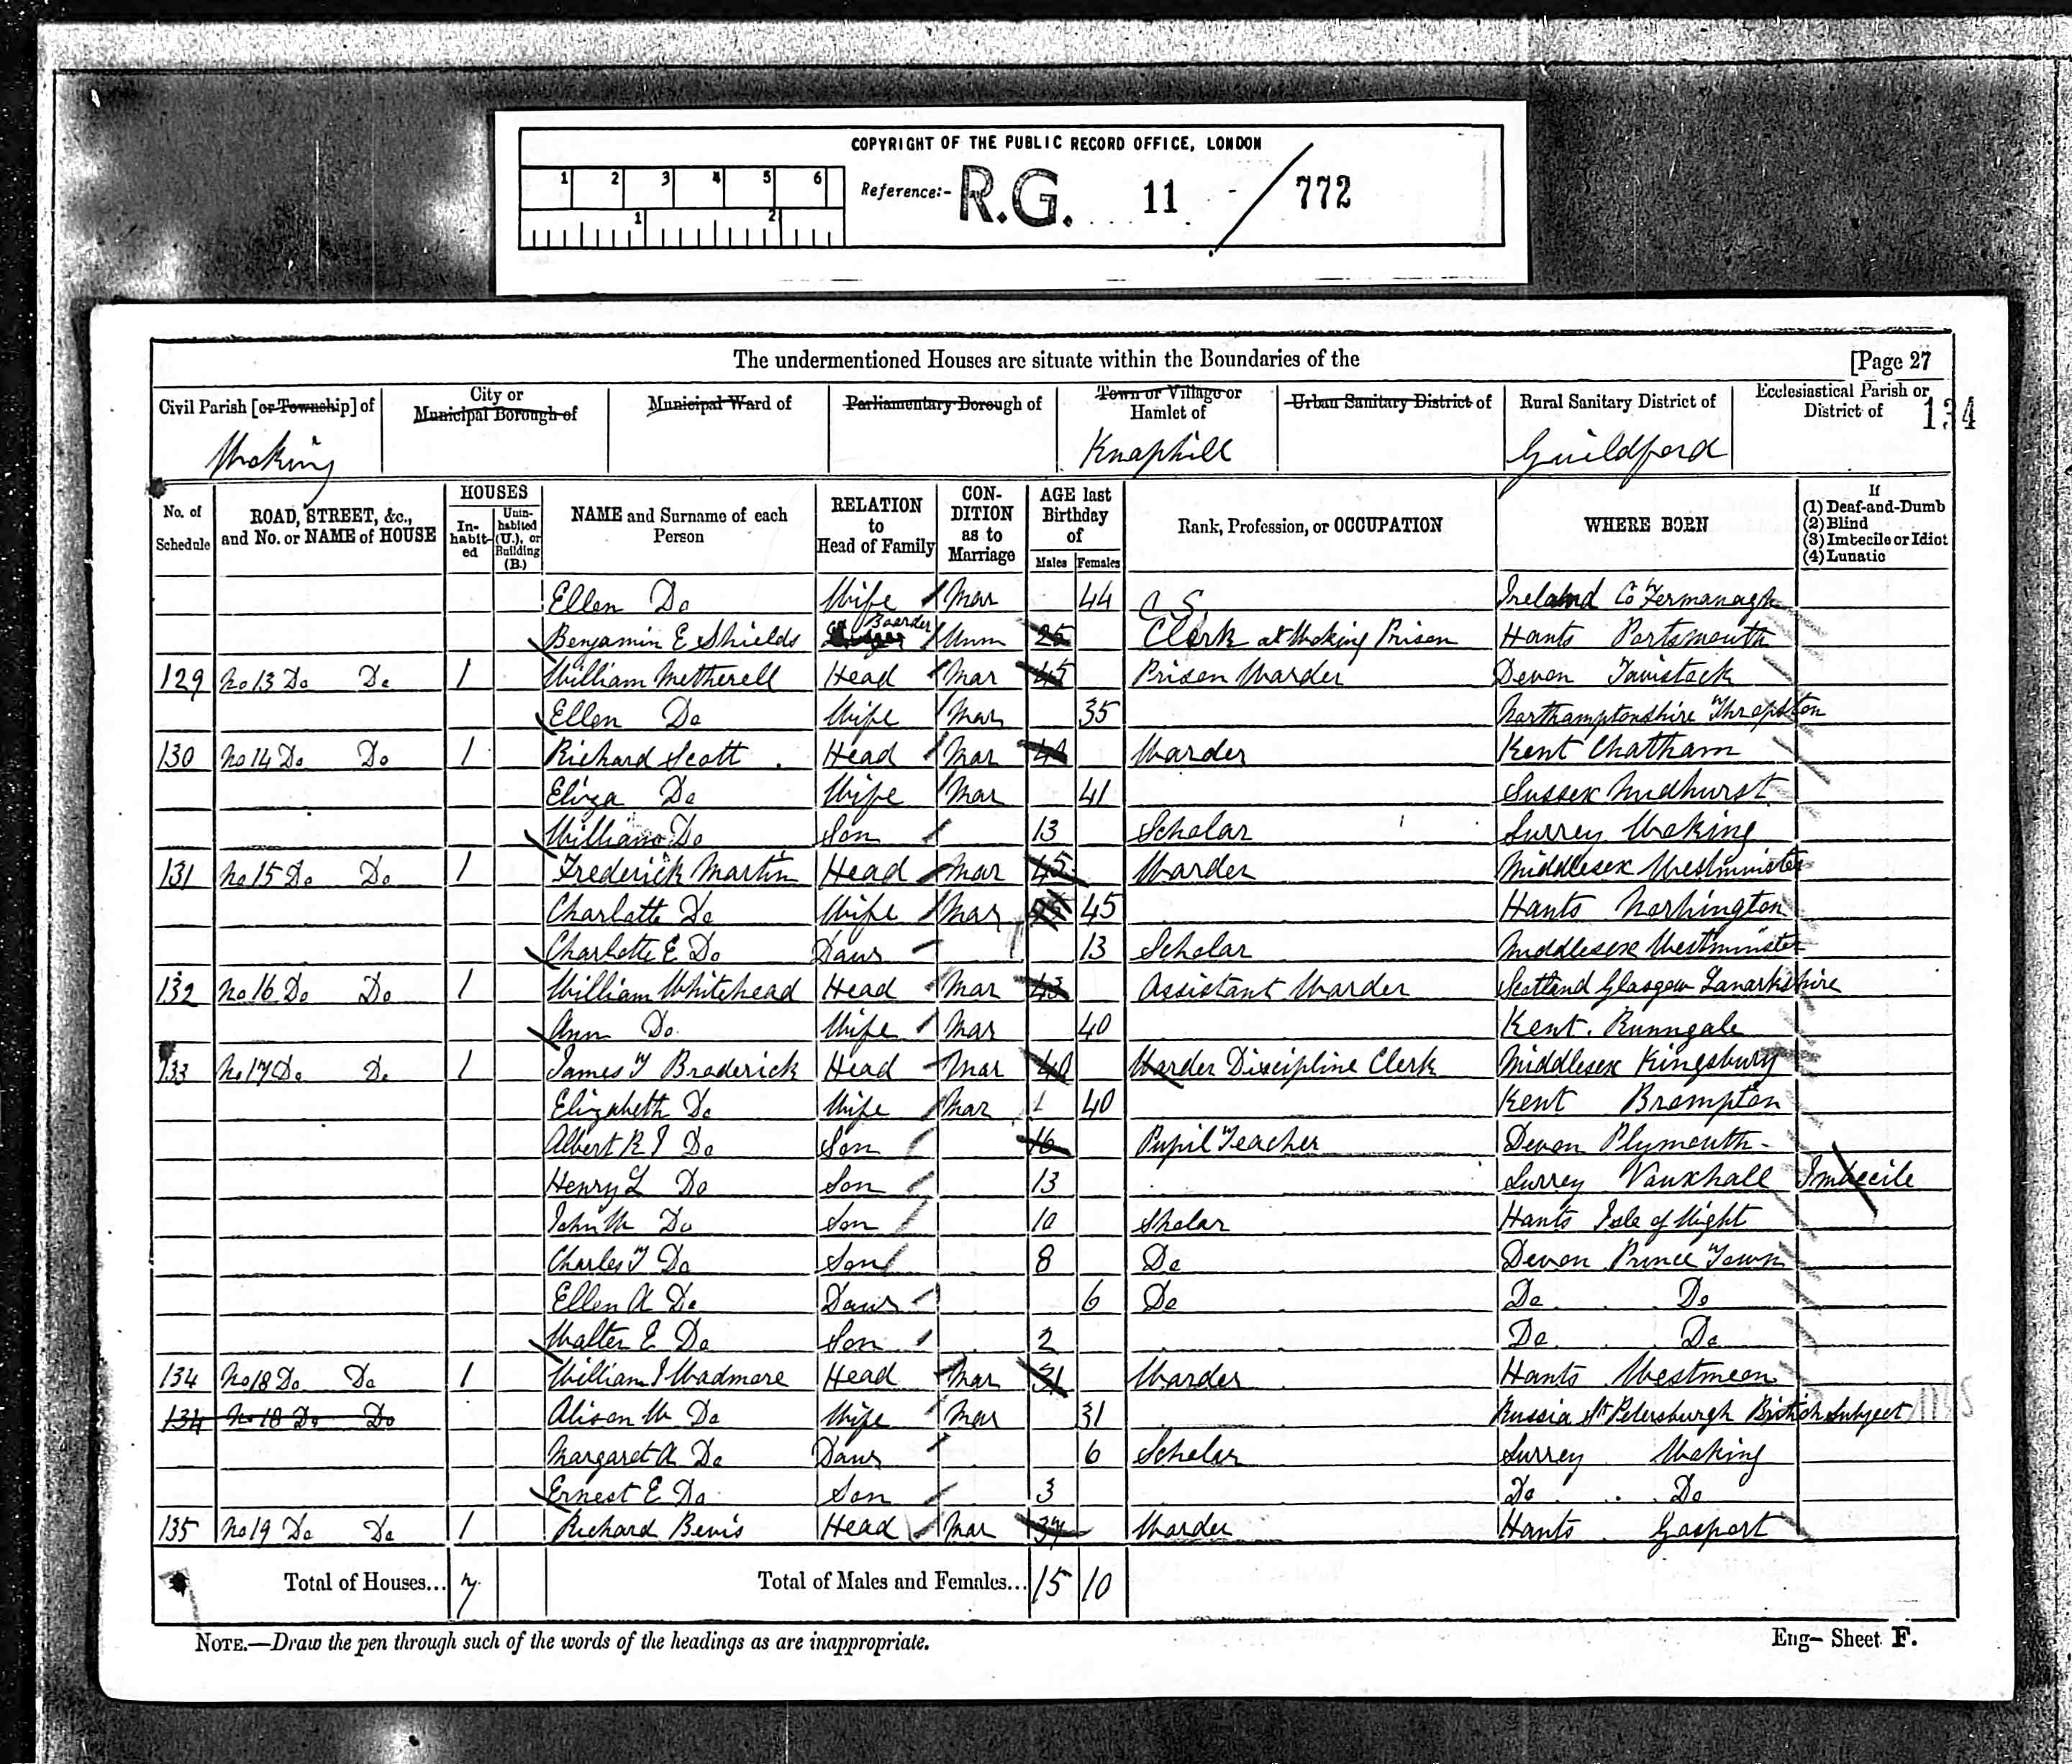 COPYRIGHT OF THE PUBLIC RECORD OFFICE, LONDON
1 2 3 4 5 6
1 2
Reference:- R.G. 11 / 772
The undermentioned Houses are situate within the Boundaries of the [Page 27
Civil Parish [or Township] of City or Municipal Borough of Municipal Ward of Parliamentary Borough of Town or Village or Hamlet of Urban Sanitary District of Rural Sanitary District of Ecclesiastical Parish or District of 134
Woking Knaphill Guildford
No. of Schedule ROAD, STREET, &c., and No. or NAME of HOUSE HOUSES In-habit-ed Unin-habited (U.), or Building (B.) NAME and Surname of each Person RELATION to Head of Family CON-DITION as to Marriage AGE last Birthday of Males Females Rank, Profession, or OCCUPATION WHERE BORN If (1) Deaf-and-Dumb (2) Blind (3) Imbecile or Idiot (4) Lunatic
Ellen Do Wife Mar 44 Ireland Co Fermanagh
C. S.
Benjamin E Shields Boarder Unm 25 Clerk at Woking Prison Hants Portsmouth
129 No 13 Do Do 1 William Metherell Head Mar 45 Prison Warder Devon Tavistock
Ellen Do Wife Mar 35 Northamptonshire Thrapston
130 No 14 Do Do 1 Richard Scott Head Mar Warder Kent Chatham
Eliza Do Wife Mar 41 Sussex Midhurst
William Do Son 13 Scholar Surrey Woking
131 No 15 Do Do 1 Frederick Martin Head Mar 45 Warder Middlesex Westminster
Charlotte Do Wife Mar 45 Hants Norhington
Charlotte E Do Daur 13 Scholar Middlesex Westminster
132 No 16 Do Do 1 William Whitehead Head Mar 43 Assistant Warder Scotland Glasgow Lanarkshire
Ann Do Wife Mar 40 Kent
133 No 17 Do Do 1 James T Broderick Head Mar 40 Warder Discipline Clerk Middlesex Kingsbury
Elizabeth Do Wife Mar 40 Kent Brompton
Albert R J Do Son 16 Pupil Teacher Devon Plymouth
Henry L Do Son 13 Surrey Vauxhall Imbecile
John W Do Son 10 Sholar Hants Isle of Wight
Charles T Do Son 8 Do Devon Prince Town
Ellen A Do Daur 6 Do Do Do
Walter E Do Son 2 Do Do
134 No 18 Do Do 1 William J Wadmore Head Mar 31 Warder Hants Westmeon
134 No 18 Do Do Alison W Do Wife Mar 31 Russia St Petersburgh British Subject
Margaret A Do Daur 6 Scholar Surrey Woking
Ernest E Do Son 3 Do Do
135 No 19 Do Do 1 Richard Bevis Head Mar 37 Warder Hants Gosport
Total of Houses... 7 Total of Males and Females... 15 10
NOTE.—Draw the pen through such of the words of the headings as are inappropriate. Eng— Sheet F.